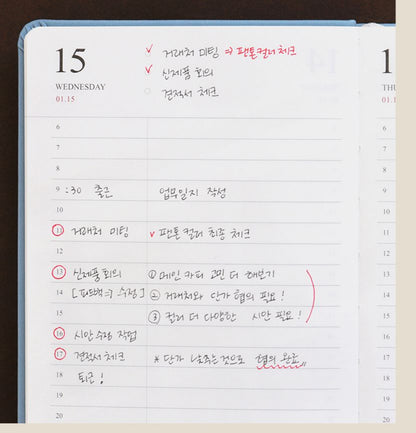 15
WEDNESDAY
01.15
✓ 거래처 미팅 ⇒ 팬톤컬러 체크
✓ 신제품 회의
○ 견적서 체크
14
1
THU
01.1
6
7
8
9 :30 출근 업무일지 작성
10
11 거래처 미팅 ✓ 팬톤 컬러 최종 체크
12
13 신제품 회의 ① 메인 카피 고민 더 해보기
14 [피드백 ⇒ 수정] ② 거래처와 단가 협의 필요!
15 ③ 컬러 더 다양한 시안 필요!
16 시안 수정 작업
17 견적서 체크 * 단가 낮추는 것으로 협의 완료,,
18 퇴근!
19
20